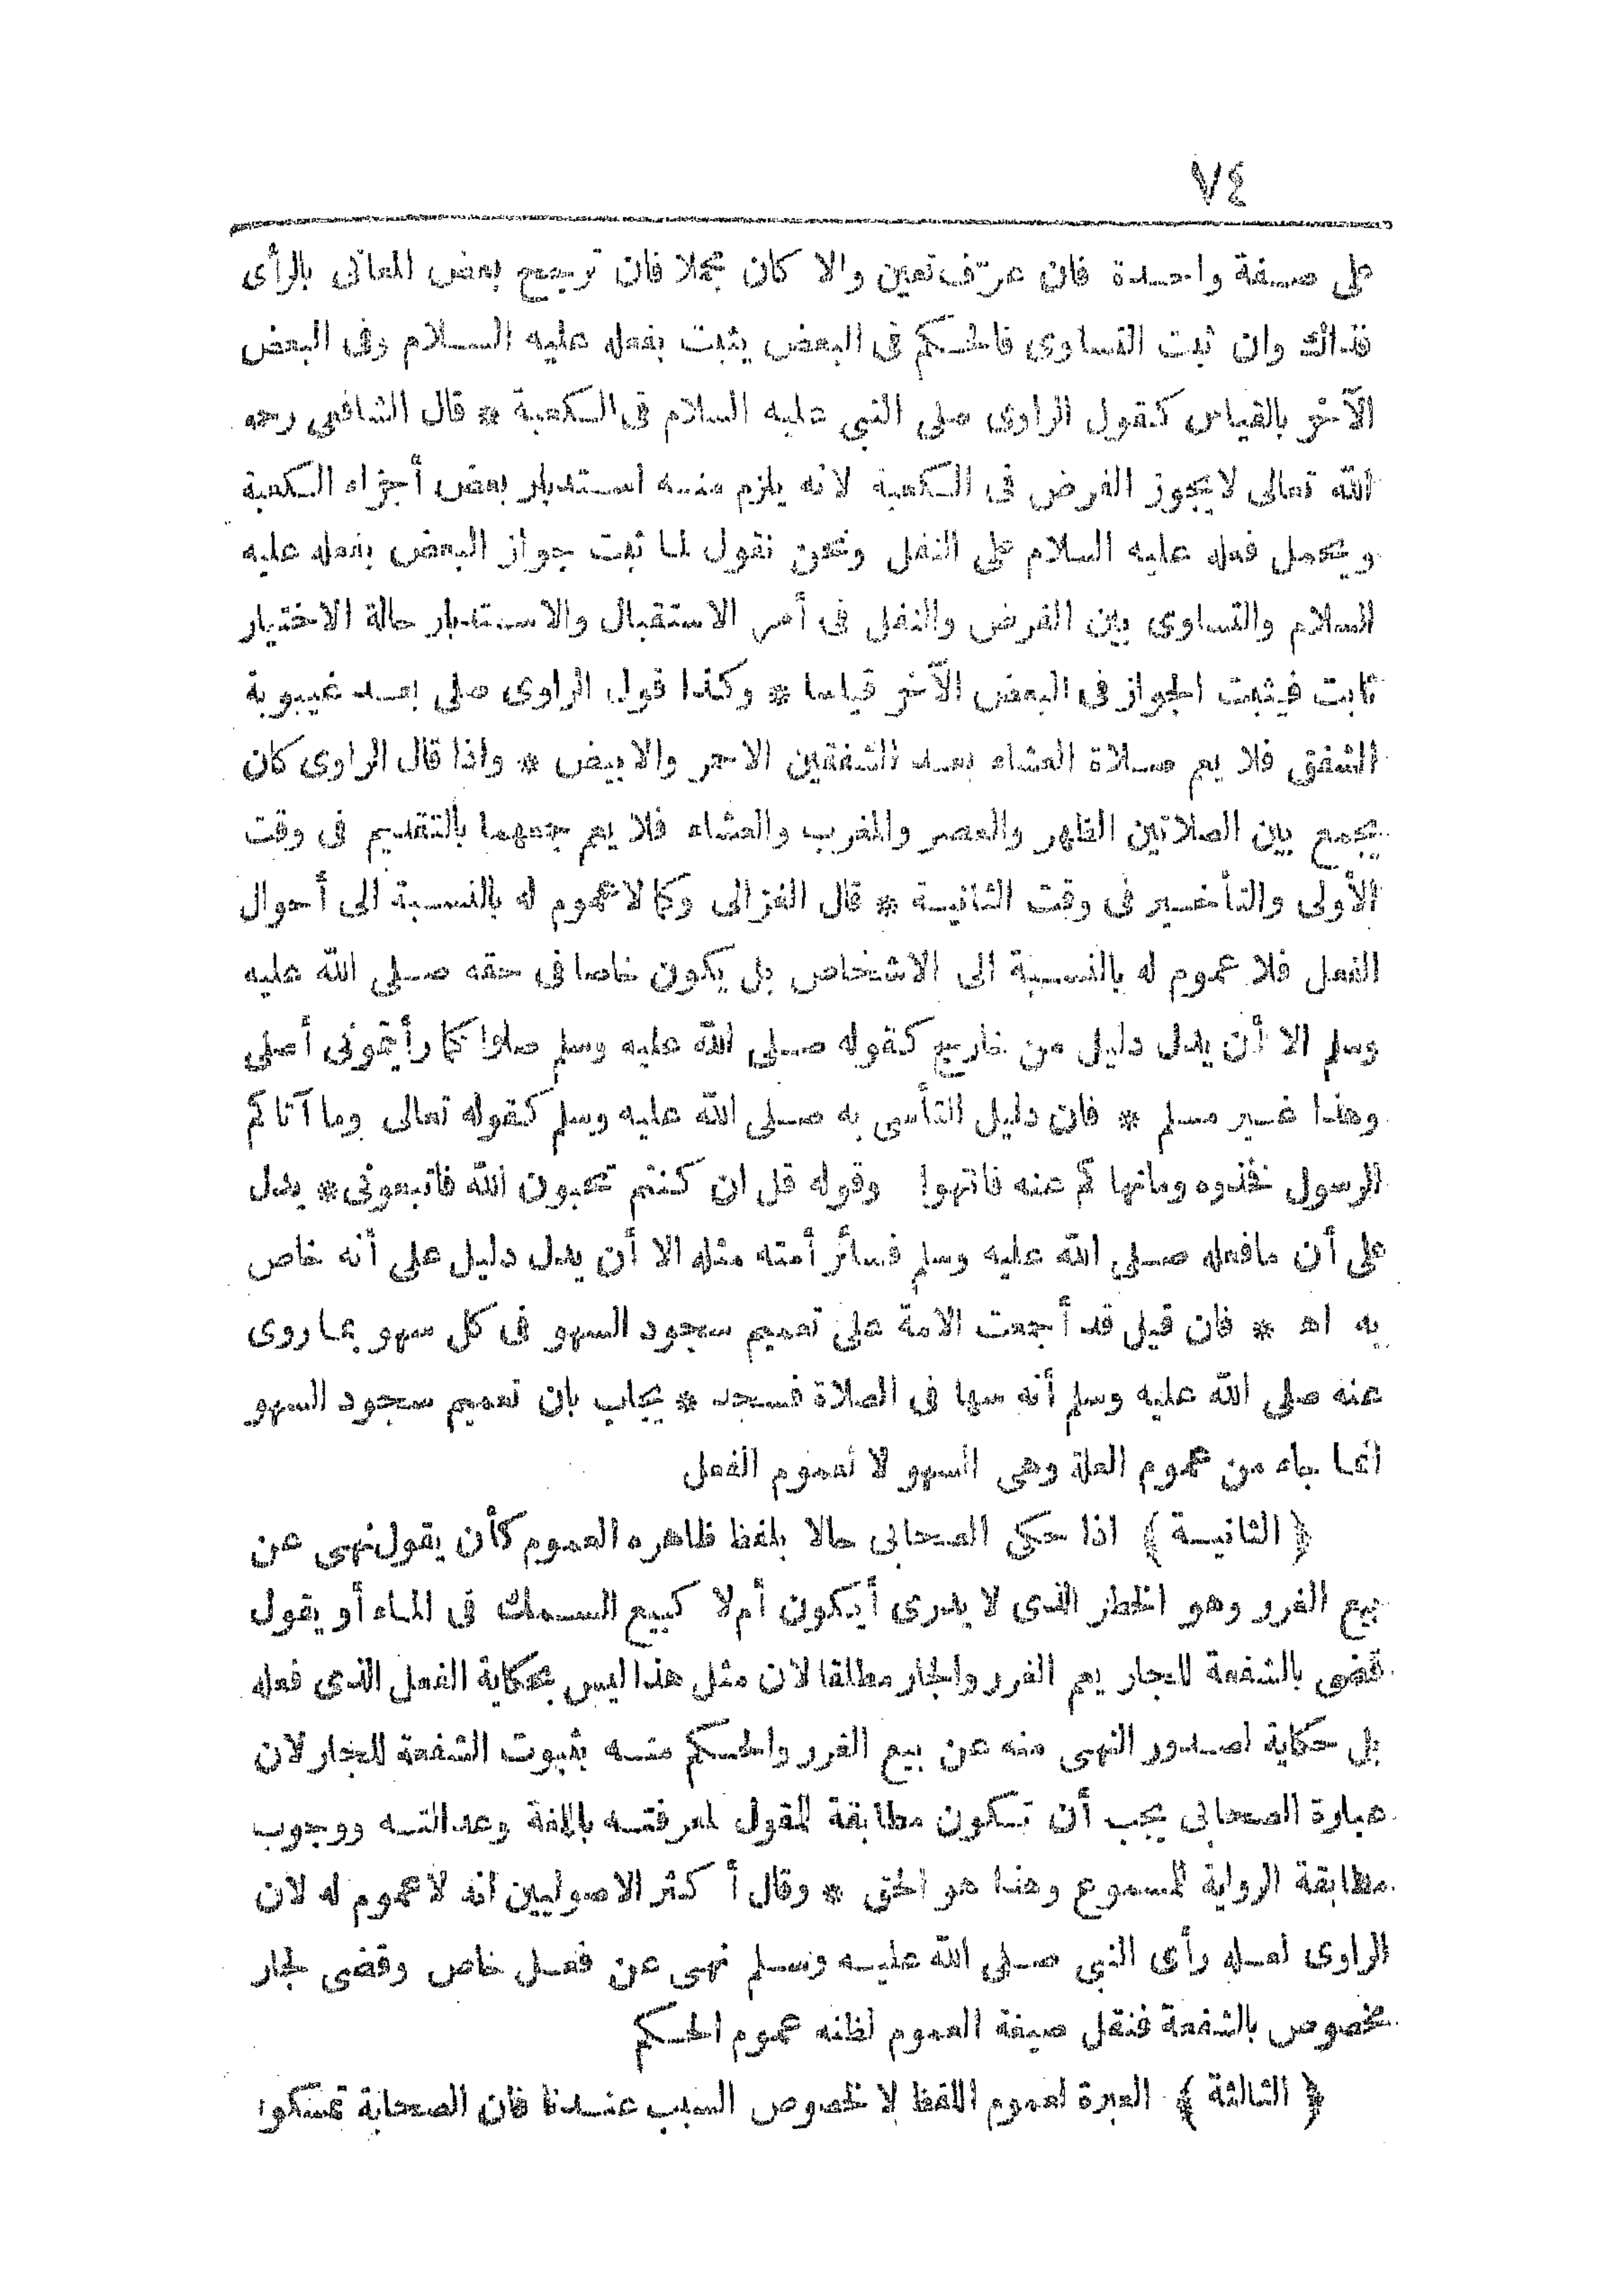 ٧٤
على صفة واحدة فان عرّف تعين والا كان مجملا فان ترجح بعض المعانى بالرأى
فذاك وان ثبت التساوى فالحكم فى البعض يثبت بفعله عليه السلام وفى البعض
الآخر بالقياس كقول الراوى صلى النبي عليه السلام فى الكعبة * قال الشافعى رحمه
الله تعالى لا يجوز الفرض فى الكعبة لانه يلزم منه استدبار بعض أجزاء الكعبة
ويحمل فعله عليه السلام على النفل ونحن نقول لما ثبت جواز البعض بفعله عليه
السلام والتساوى بين الفرض والنفل فى أمر الاستقبال والاستدبار حالة الاختيار
ثابت فيثبت الجواز فى البعض الآخر قياسا * وكذا قول الراوى صلى بعد غيبوبة
الشفق فلا يعم صلاة العشاء بعد الشفقين الاحمر والابيض * واذا قال الراوى كان
يجمع بين الصلاتين الظهر والعصر والمغرب والعشاء فلا يعم جمعهما بالتقديم فى وقت
الأولى والتأخير فى وقت الثانية * قال الغزالى وكما لا عموم له بالنسبة الى أحوال
الفعل فلا عموم له بالنسبة الى الاشخاص بل يكون خاصا فى حقه صلى الله عليه
وسلم الا أن يدل دليل من خارج كقوله صلى الله عليه وسلم صلوا كما رأيتمونى أصلى
وهذا غير مسلم * فان دليل التأسى به صلى الله عليه وسلم كقوله تعالى وما آتاكم
الرسول فخذوه ومانهاكم عنه فانتهوا وقوله قل ان كنتم تحبون الله فاتبعونى * يدل
على أن مافعله صلى الله عليه وسلم فسائر أمته مثله الا أن يدل دليل على أنه خاص
به اه * فان قيل قد أجمعت الامة على تعميم سجود السهو فى كل سهو بما روى
عنه صلى الله عليه وسلم أنه سها فى الصلاة فسجد * يجاب بان تعميم سجود السهو
انما جاء من عموم العلة وهى السهو لا لعموم الفعل
﴿ الثانية ﴾ اذا حكى الصحابى حالا بلفظ ظاهره العموم كأن يقول نهى عن
بيع الغرر وهو الخطر الذى لا يدرى أيكون أم لا كبيع السمك فى الماء أو يقول
قضى بالشفعة للجار يعم الغرر والجار مطلقا لان مثل هذا ليس بحكاية الفعل الذى فعله
بل حكاية لصدور النهى منه عن بيع الغرر والحكم منه بثبوت الشفعة للجار لان
عبارة الصحابى يجب أن تكون مطابقة للقول لمعرفته باللغة وعدالته ووجوب
مطابقة الرواية للمسموع وهذا هو الحق * وقال أكثر الاصوليين انه لا عموم له لان
الراوى لعله رأى النبي صلى الله عليه وسلم نهى عن فعل خاص وقضى لجار
مخصوص بالشفعة فنقل صيغة العموم لظنه عموم الحكم
﴿ الثالثة ﴾ العبرة لعموم اللفظ لا لخصوص السبب عندنا فان الصحابة تمسكوا